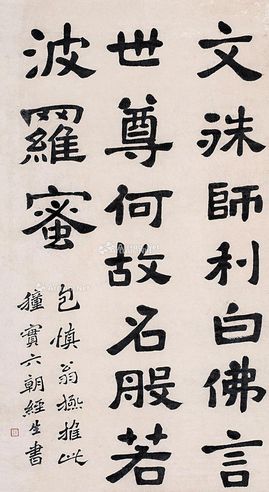 文殊師利白佛言
世尊何故名般若
波羅蜜
包慎翁極推此
種實六朝經生書